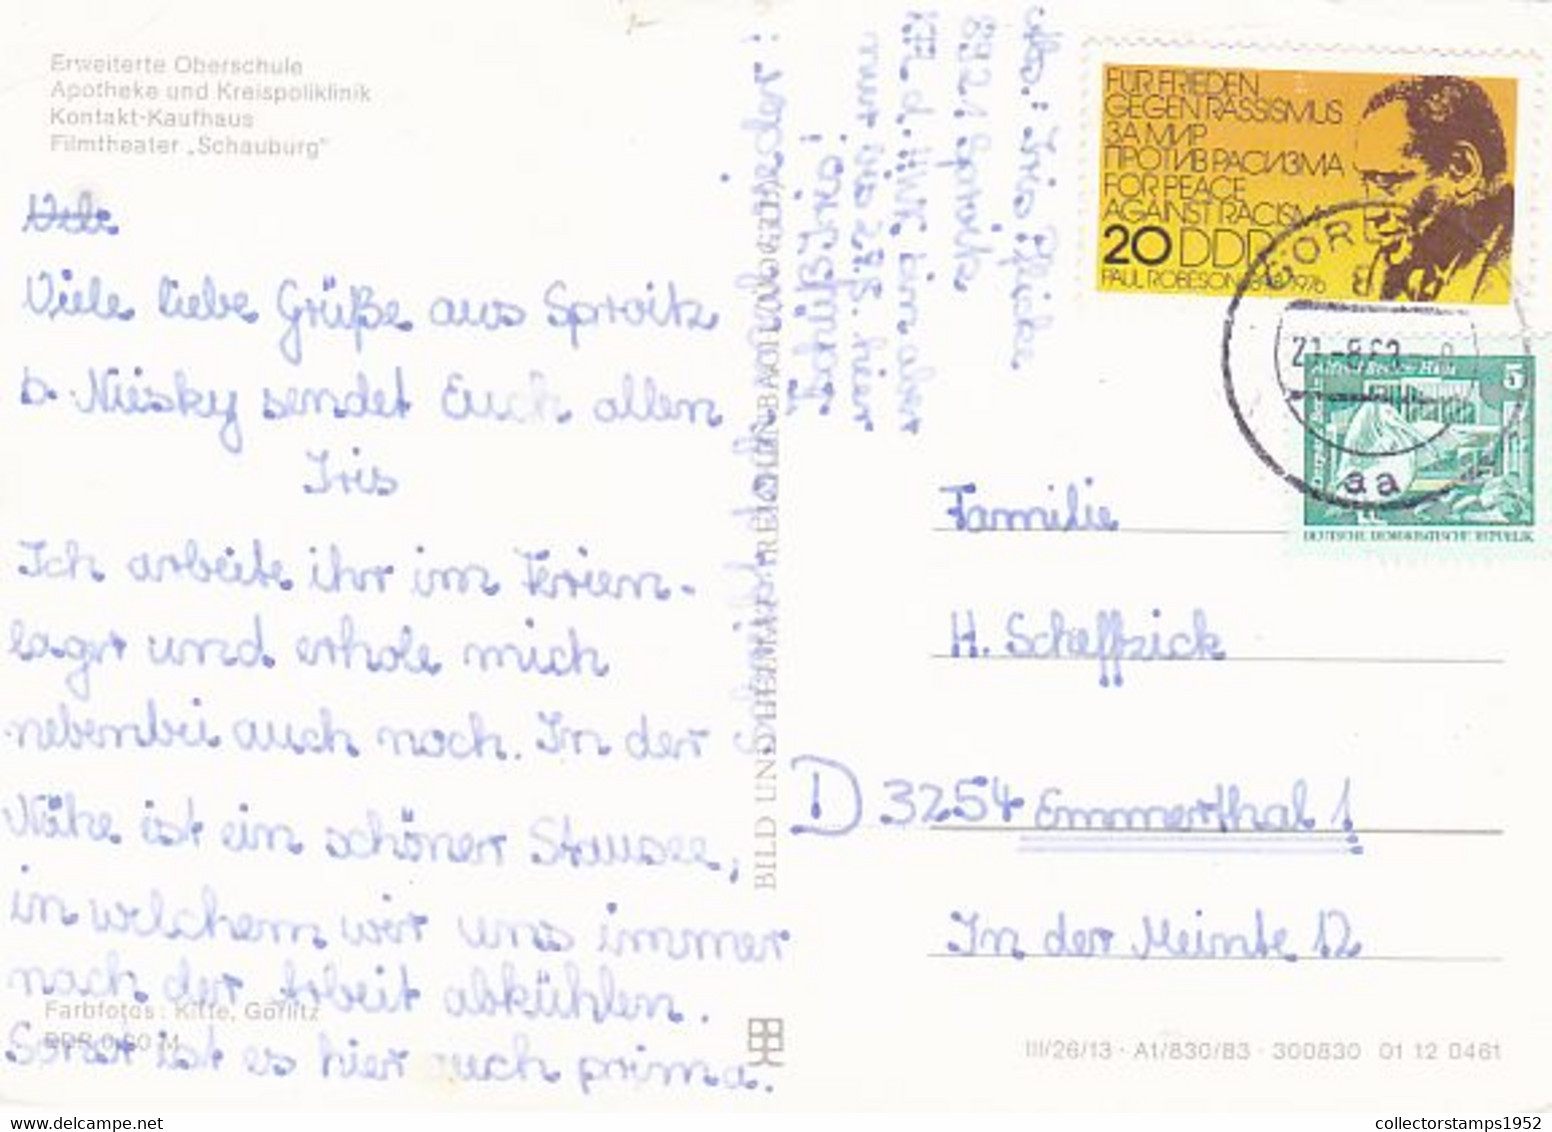 Erweiterte Oberschule
Apotheke und Kreispoliklinik
Kontakt-Kaufhaus
Filmtheater „Schauburg"
Viele liebe Grüße aus Sproitz
b. Niesky sendet Euch allen
Iris
Ich arbeite ihr im Ferien-
lager und erhole mich
nebenbei auch noch. In der
Nähe ist ein schöner Stausee,
in welchem wir uns immer
nach der Arbeit abkühlen.
Sonst ist es hier auch prima.
Farbfotos: Kitte, Görlitz
DDR 0,80 M
BILD UND HEIMAT REICHENBACH
Abs.: Iris
8921 Sproitz
bin aber
nur bis 27.8. hier
FÜR FRIEDEN
GEGEN RASSISMUS
ЗА МИР
ПРОТИВ РАСИЗМА
FOR PEACE
AGAINST RACISM
20 DDR
PAUL ROBESON 1898-1976
5
DEUTSCHE DEMOKRATISCHE REPUBLIK
aa
Familie
H. Scheffzick
D 3254 Emmerthal 1
In der Meinte 12
III/26/13 · A1/830/83 · 300830 01 12 0461
collectorstamps1952